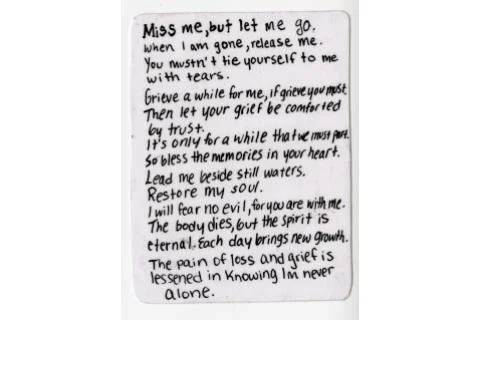 Miss me, but let me go.
When I am gone, release me.
You mustn't tie yourself to me
with tears.
Grieve a while for me, if grieve you must.
Then let your grief be comforted
by trust.
It's only for a while that we must part.
So bless the memories in your heart.
Lead me beside still waters.
Restore my soul.
I will fear no evil, for you are with me.
The body dies, but the spirit is
eternal. Each day brings new growth.
The pain of loss and grief is
lessened in knowing Im never
alone.